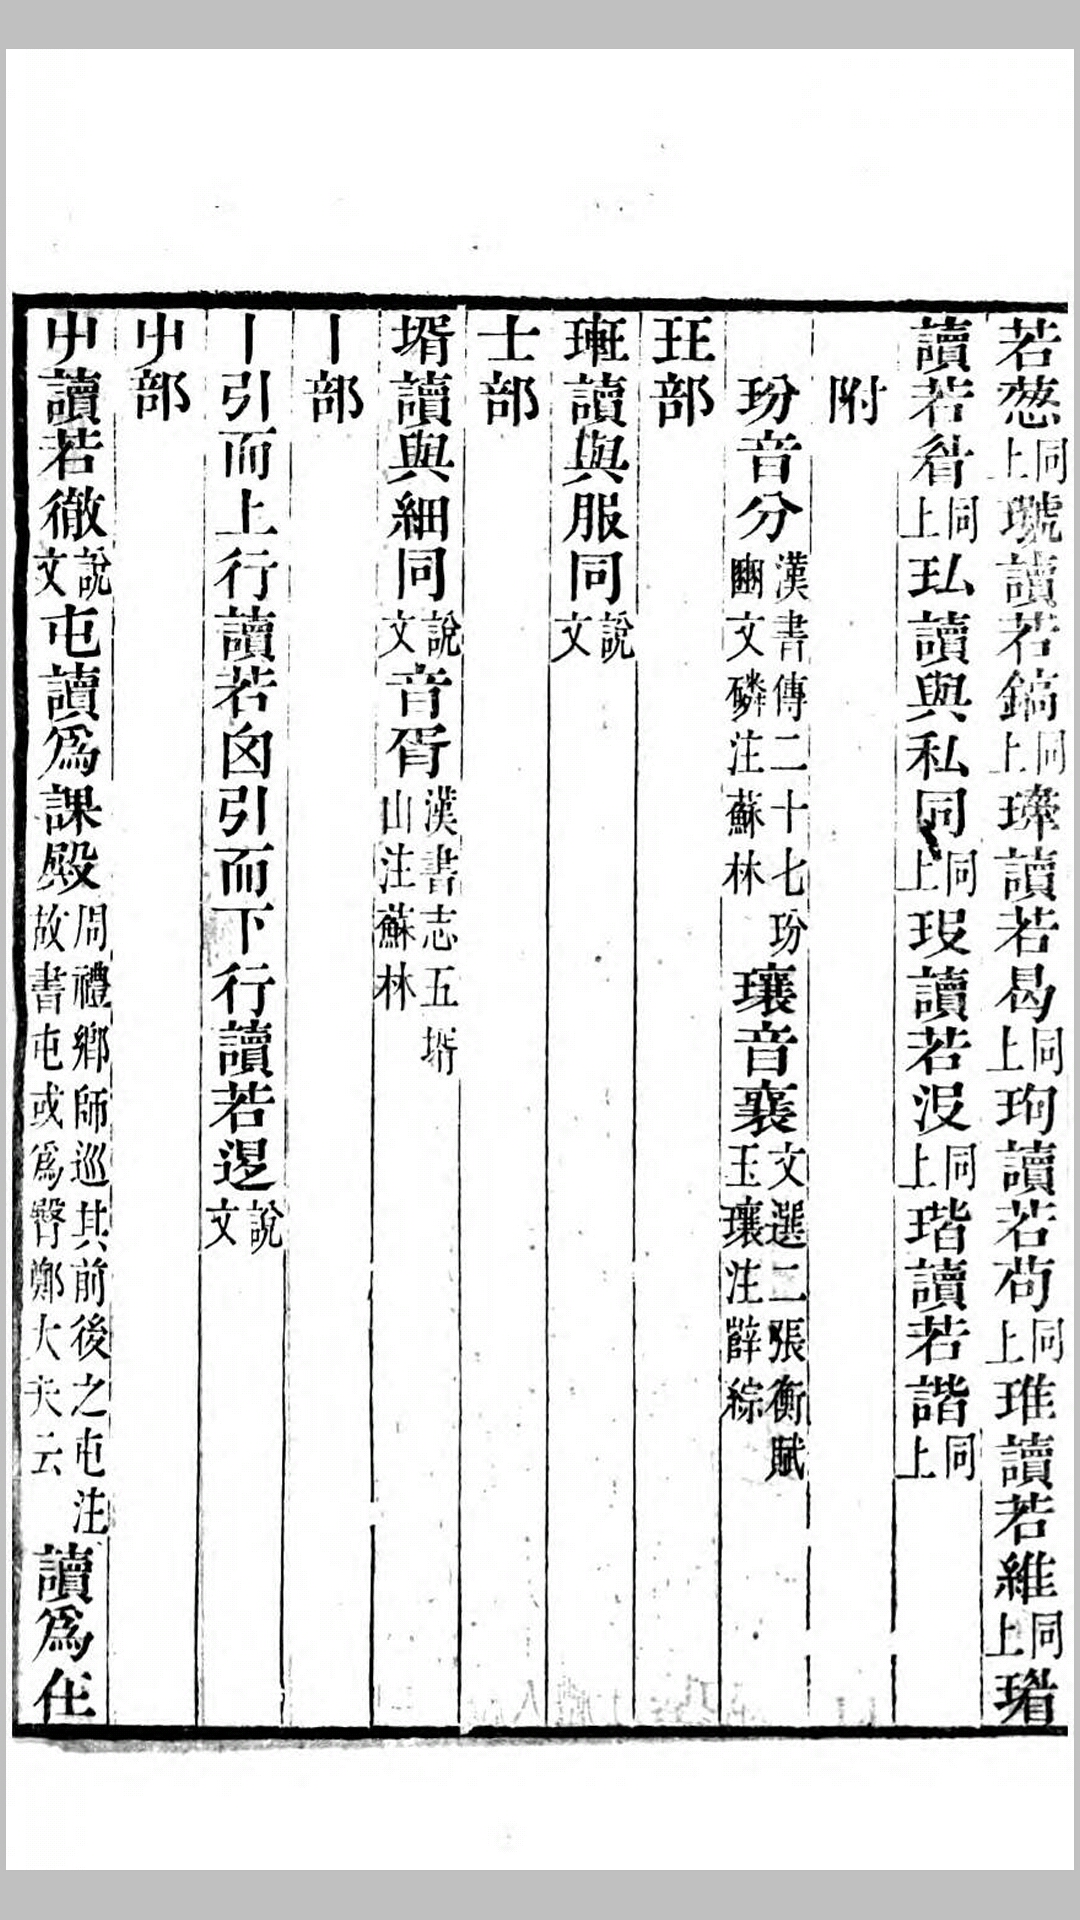 若葱同上瓗讀若鎬同上瓋讀若曷同上玽讀若苟同上琟讀若維同上瑂
讀若眉同上玜讀與私同同上玟讀若沒同上瑎讀若諧同上
附
玢音分漢書傳二十七玢豳文磷注蘇林瓖音襄文選二張衡賦玉瓖注薛綜
玨部
㻞讀與服同說文
士部
壻讀與細同說文音胥漢書志五壻山注蘇林
丨部
丨引而上行讀若囟引而下行讀若𨓤說文
屮部
屮讀若徹說文屯讀爲課殿周禮鄉師巡其前後之屯注故書屯或爲臀鄭大夫云讀爲在